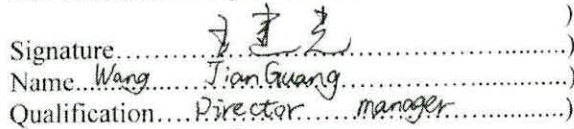 )
Signature..........王建光..........)
Name...Wang JianGuang..........)
Qualification....Director manager..........)